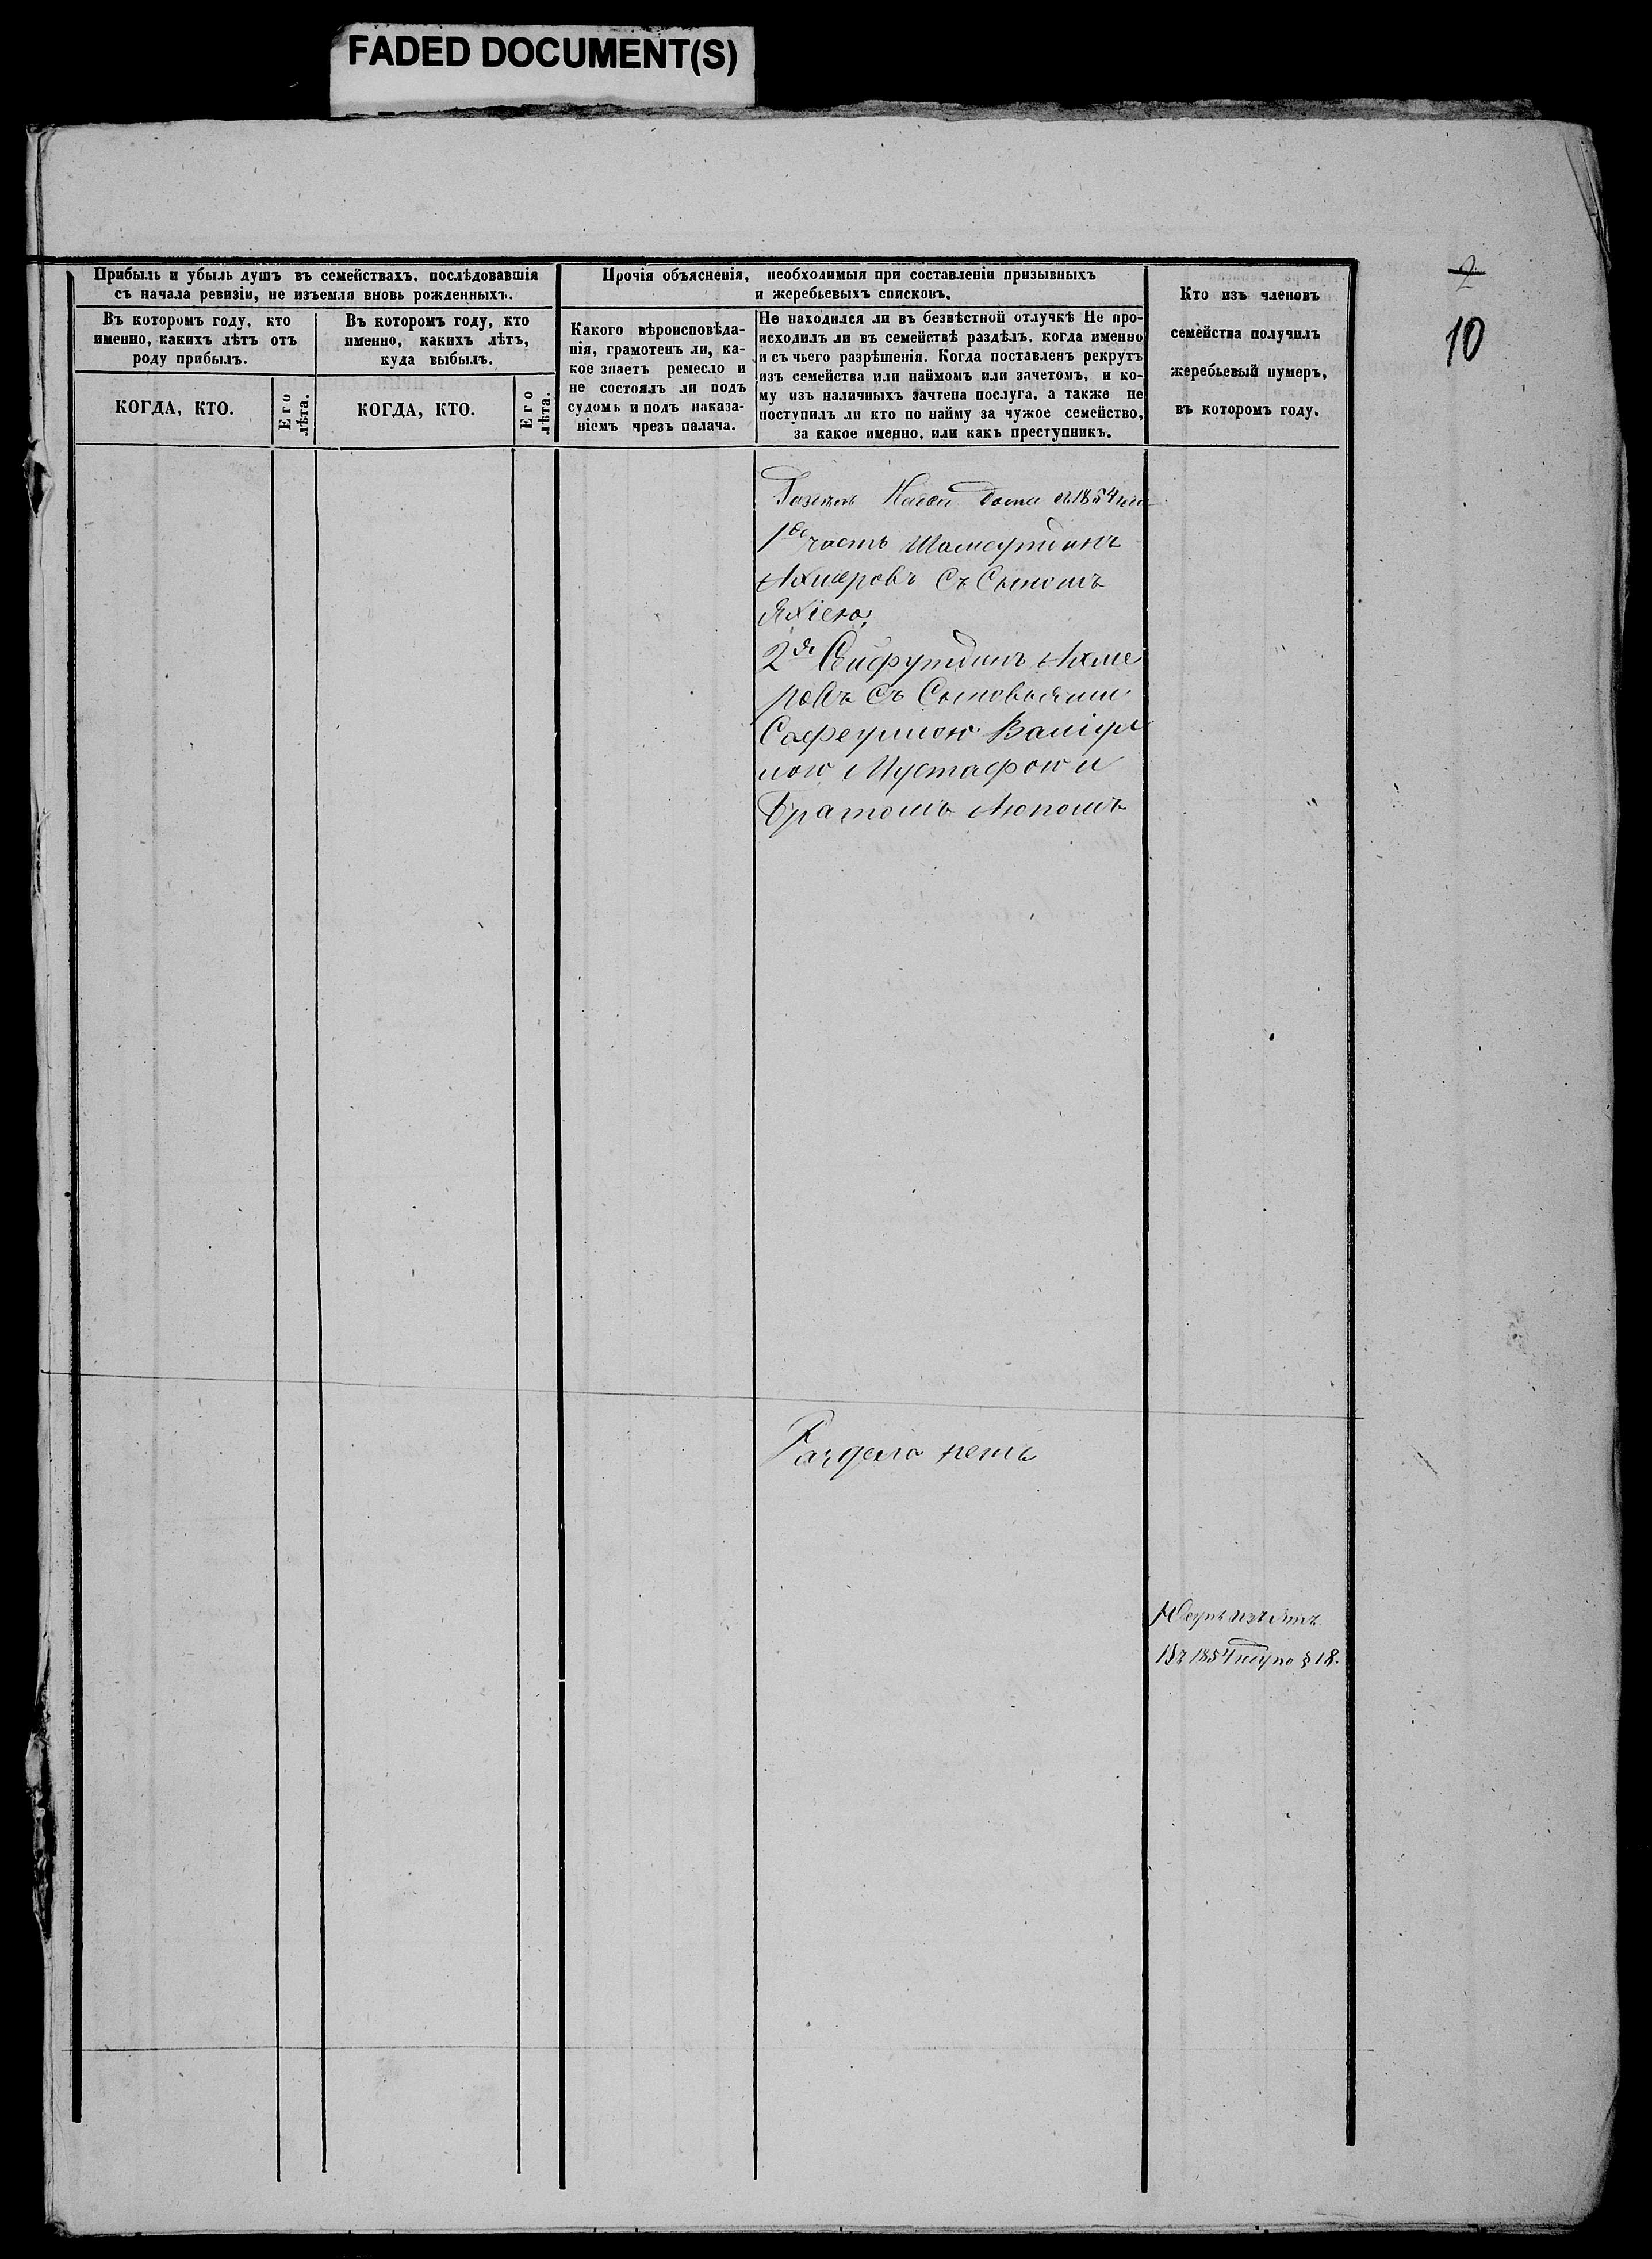 FADED DOCUMENT(S)
2
10
Прибыль и убыль душъ въ семействахъ, послѣдовавшія
съ начала ревизіи, не изъемля вновь рожденныхъ.
Въ которомъ году, кто
именно, какихъ лѣтъ отъ
роду прибылъ.
Въ которомъ году, кто
именно, какихъ лѣтъ,
куда выбылъ.
КОГДА, КТО.
Его лѣта.
КОГДА, КТО.
Его лѣта.
Прочія объясненія, необходимыя при составленіи призывныхъ
и жеребьевыхъ списковъ.
Какого вѣроисповѣда-
нія, грамотенъ ли, ка-
кое знаетъ ремесло и
не состоялъ ли подъ
судомъ и подъ наказа-
ніемъ чрезъ палача.
Не находился ли въ безвѣстной отлучкѣ Не про-
исходилъ ли въ семействѣ раздѣлъ, когда именно
и съ чьего разрѣшенія. Когда поставленъ рекрутъ
изъ семейства или наймомъ или зачетомъ, и ко-
му изъ наличныхъ зачтена послуга, а также не
поступилъ ли кто по найму за чужое семейство,
за какое именно, или какъ преступникъ.
Кто изъ членовъ
семейства получилъ
жеребьевый нумеръ,
въ которомъ году.
1854
1я часть Шамсутдинъ
Ахмеровъ Съ Сыномъ
Яхіею;
2я Сейфутдинъ Ахме
ровъ Съ Сыновьями
Мустафою и
Братомъ Аюпомъ
Раздела нетъ
Въ 1854 году по § 18.